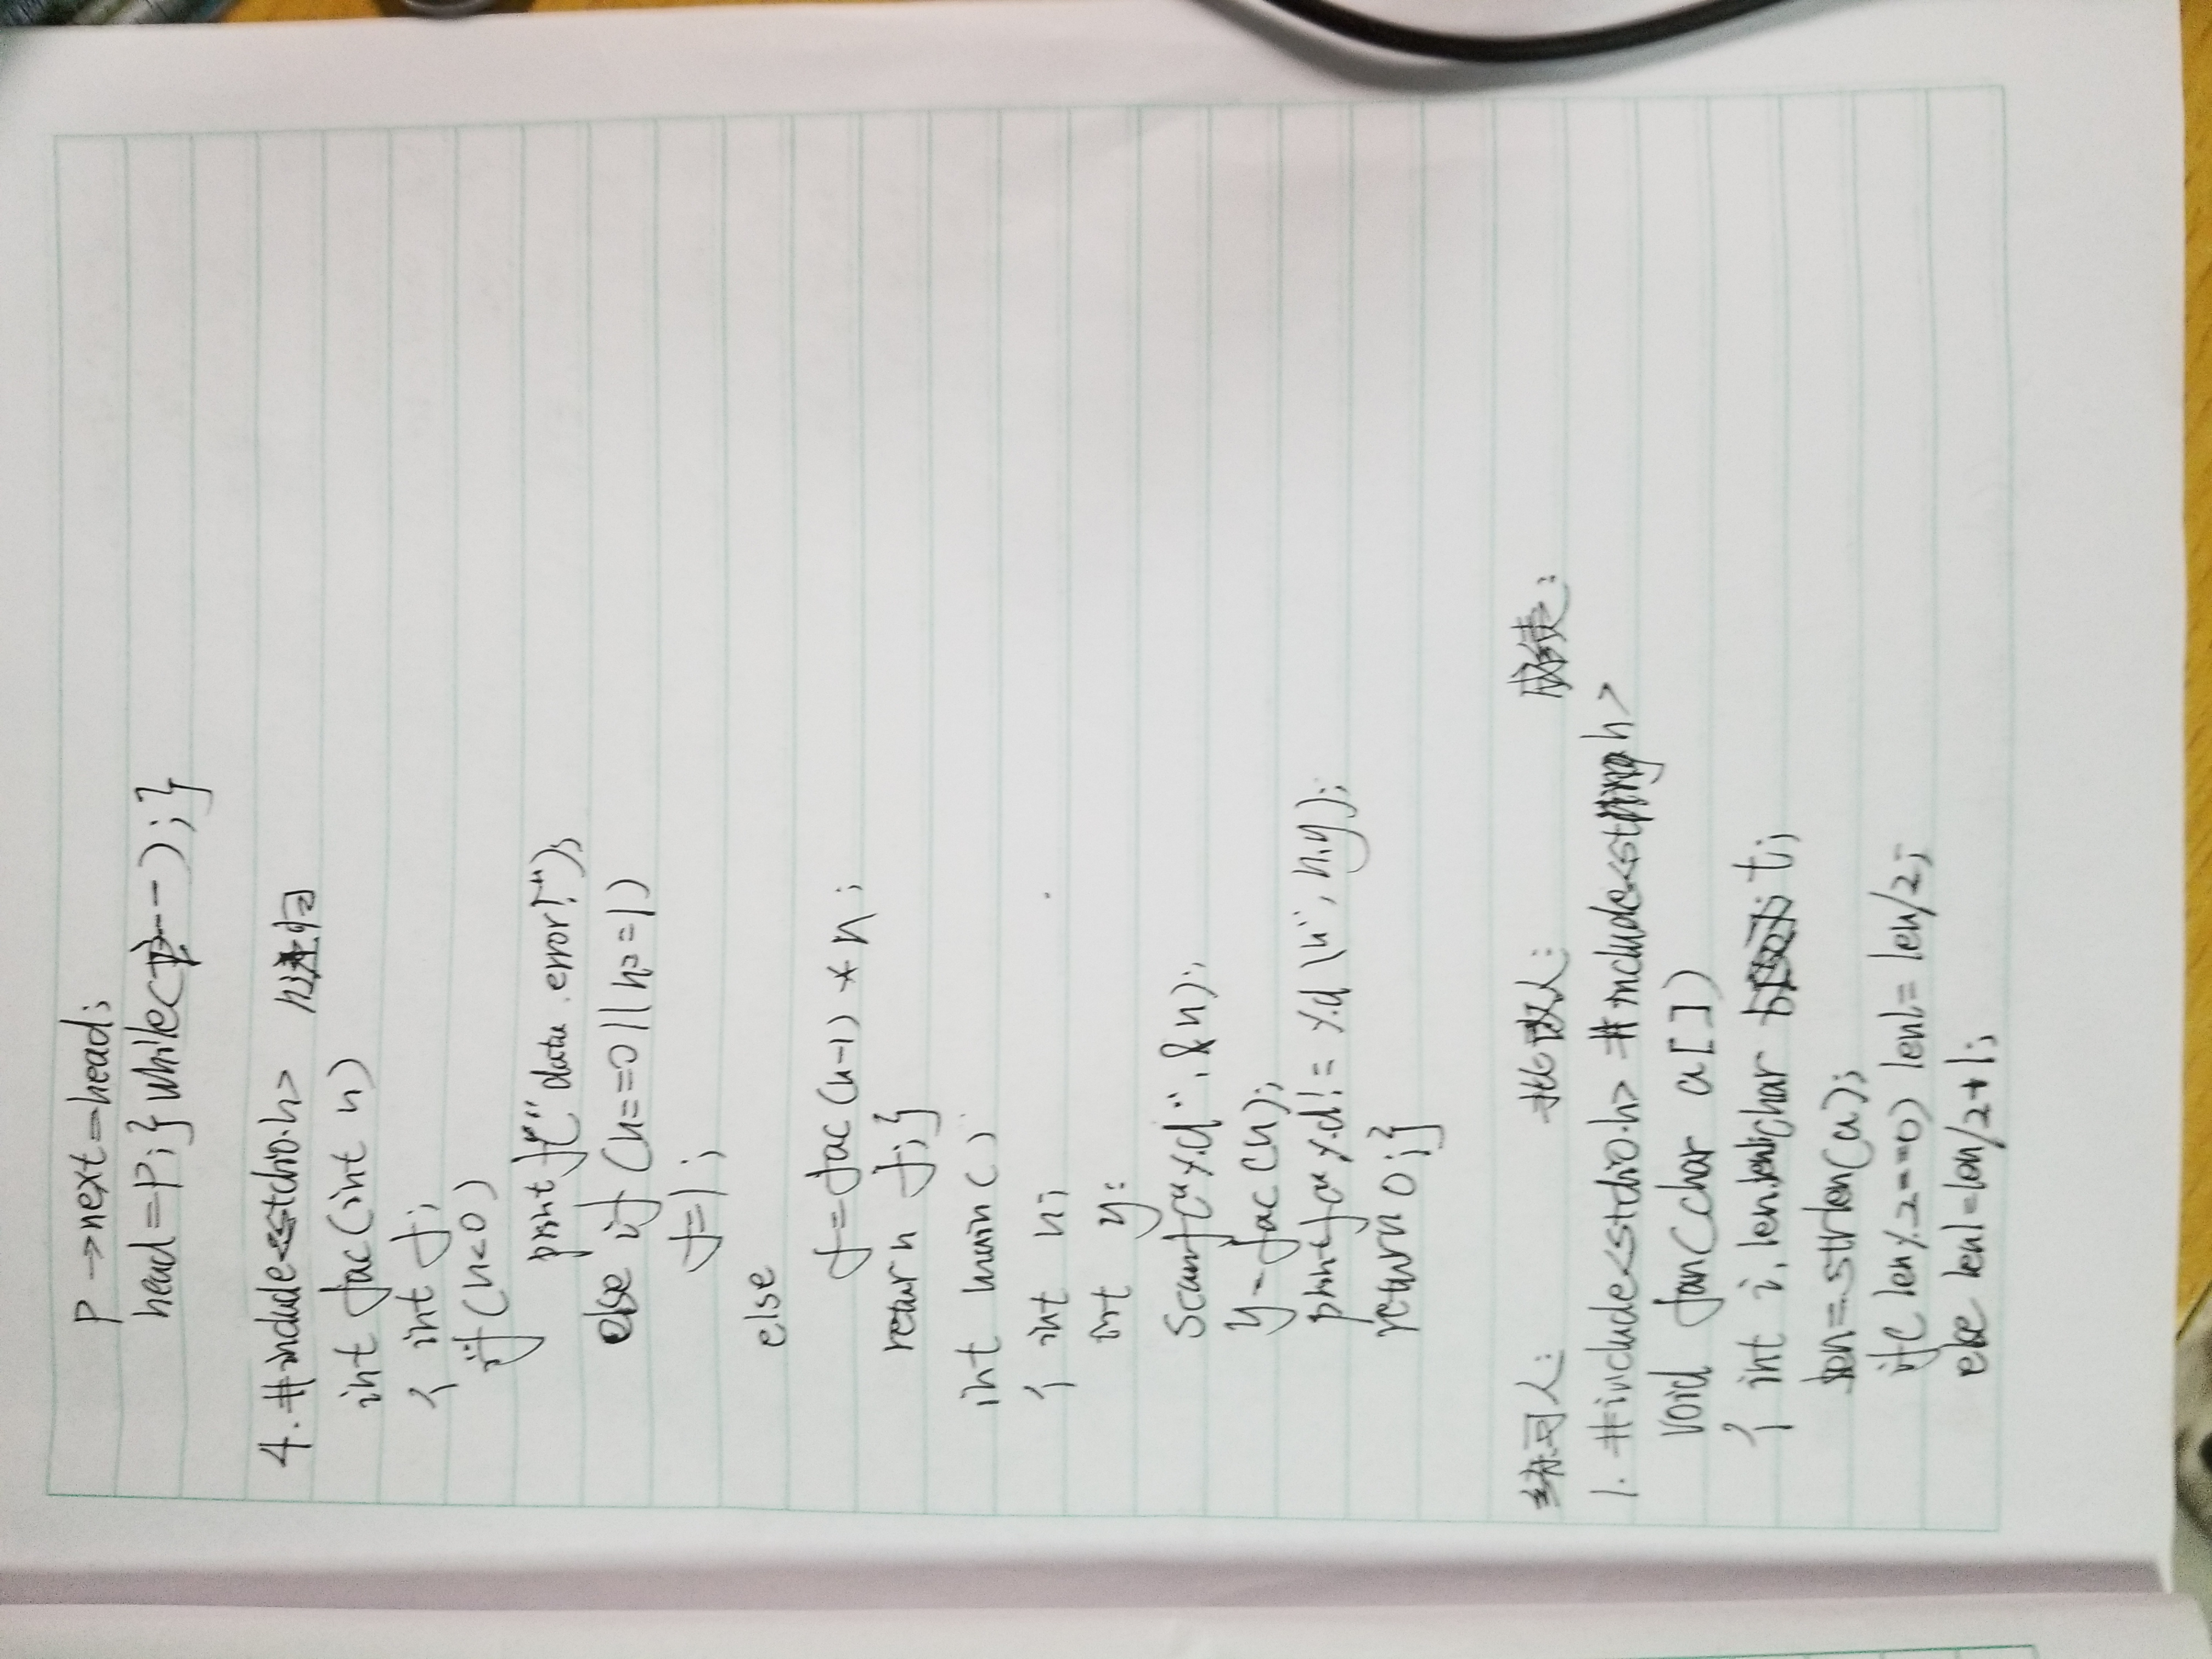 p→next=head;
head=p;}while( --);}
4. #include<stdio.h> n 归
int fac(int n)
{ int f;
if(n<0)
printf("data error!");
else if (n==0||n==1)
f=1;
else
f=fac(n-1)*n;
return f;}
int main()
{ int n;
int y;
scanf("%d",&n);
y=fac(n);
printf("%d!=%d\n",n,y);
return 0;}
练习人: 批改人: 成绩:
1. #include<stdio.h> #include<string.h>
void fan(char a[])
{ int i,len,len1;char t;
len=strlen(a);
if(len%2==0) len1=len/2;
else len1=len/2+1;